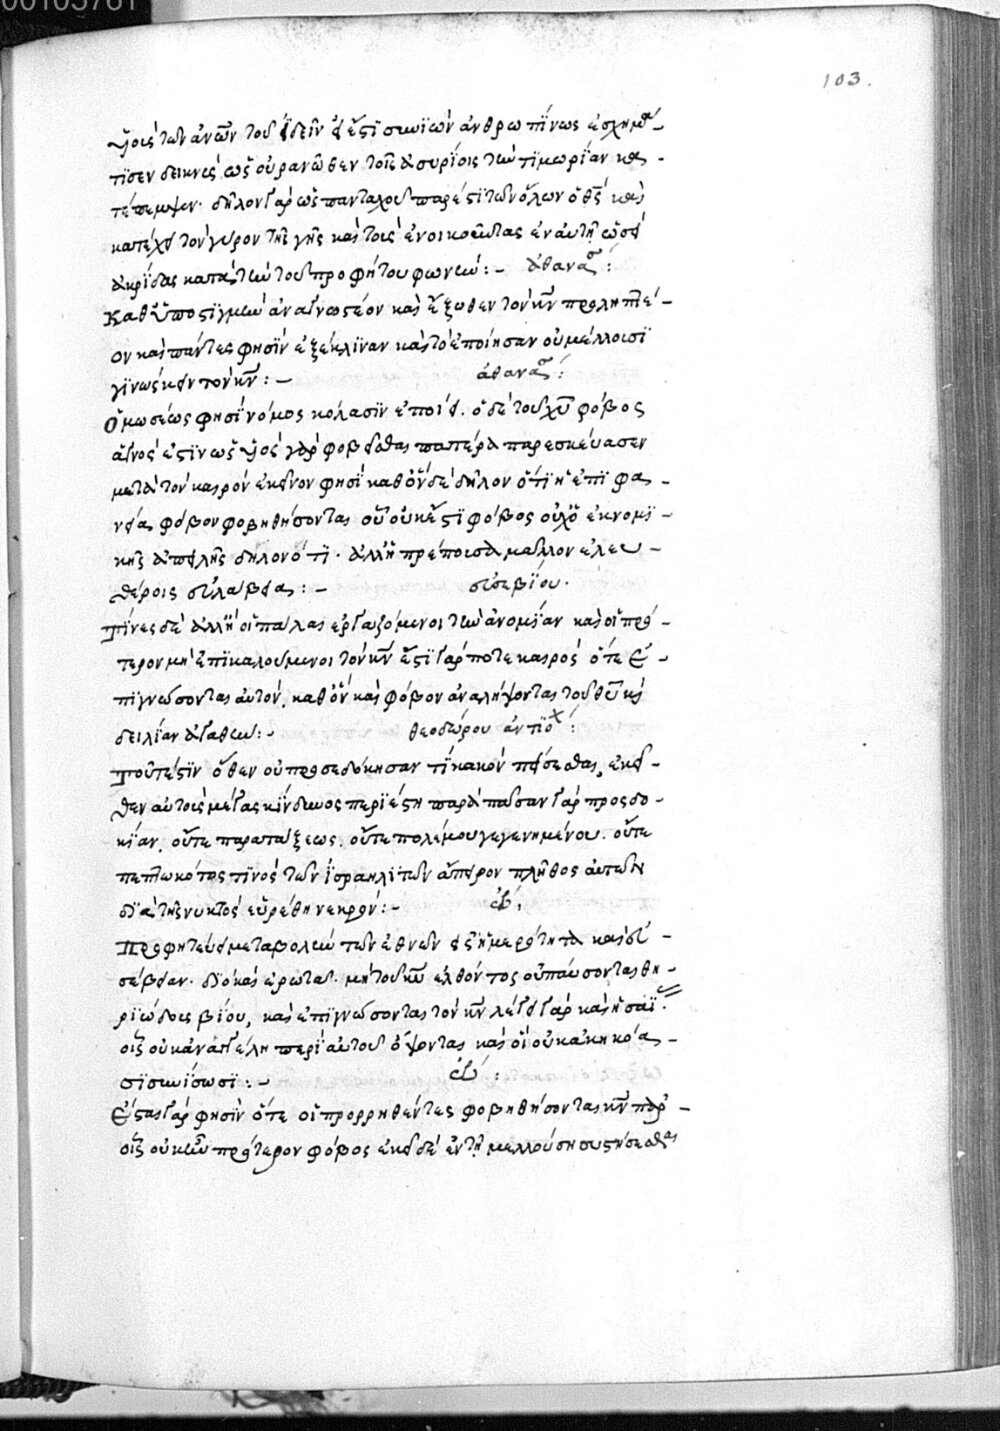 00103761
103.
υἱοὺς τῶν ἀνῶν τοῦ ἰδεῖν εἰ ἔστι συνιὼν ἀνθρωπίνως ἐσχημά-
τισεν δεικνὺς ὡς οὐρανῶθεν τοῖς ἀσυρίοις τὴν τιμωρίαν κα-
τέπεμψεν· δῆλον γὰρ ὡς πανταχοῦ πάρεστι τῶν ὅλων ὁ θς καὶ
κατέχει τὸν γῦρον τῆς γῆς καὶ τοὺς ἐνοικοῦντας ἐν αὐτῇ ὡσεὶ
ἀκρίδας κατὰ τὴν τοῦ προφήτου φωνήν:- ἀθανασ:
Καθ' ὑποστιγμὴν ἀναγνωστέον καὶ ἔξωθεν τὸν κν προσληπτέ-
ον καὶ πάντες φησὶν ἐξέκλιναν καὶ τὸ ἐποίησαν οὐ μέλλουσι
γινώσκειν τὸν κν:- ἀθανασ:
Ὁ μωσέως φησὶ νόμος κόλασιν ἐποίει. ὁ δὲ τοῦ χυ φόβος
ἁγνός ἐστιν ὡς υἱὸς γὰρ φοβεῖσθαι πατέρα παρεσκεύασεν
μετὰ τὸν καιρὸν ἐκεῖνον φησὶ καθ' ὃν δὲ δῆλον ὅτι ἡ ἐπιφα-
νεία φόβον φοβηθήσονται οὗ οὐκ ἔστι φόβος οὐχ ὁ ἐκ νομι-
κῆς ἀπειλῆς δηλονότι· ἀλλ' ἡ πρέπουσα μᾶλλον ἐλευ-
θέροις εὐλάβεια:- εὐσεβίου·
Τίνες δὲ ἀλλ' ἢ οἱ πάλαι ἐργαζόμενοι τὴν ἀνομίαν καὶ οἱ πρό-
τερον μὴ ἐπικαλούμενοι τὸν κν ἔστι γάρ ποτε καιρὸς ὅτε ἐ-
πιγνώσονται αὐτόν, καθ' ὃν καὶ φόβον ἀναλήψονται τοῦ θυ κὶ
δειλίαν ἀγαθήν:- θεοδώρου ἀντιοχ:
Τουτέστιν ὅθεν οὐ προσεδόκησαν τί κακὸν πείσεσθαι, ἐκεῖ-
θεν αὐτοῖς μέγας κίνδυνος περιέστη παρὰ πᾶσαν γὰρ προσδο-
κίαν, οὔτε παρατάξεως, οὔτε πολέμου γεγενημένου. οὔτε
πεπτωκότος τινὸς τῶν ἰσραηλιτῶν ἄπειρον πλῆθος αὐτῶν
διὰ τῆς νυκτὸς εὑρέθη νεκρόν:-
Προφητεύει μεταβολὴν τῶν ἐθνῶν εἰς ἡμερότητα καὶ εὐ-
σέβειαν· διὸ καὶ ἐρωτᾶ· μὴ τοῦ κυ ἐλθόντος οὐ παύσονται θη-
ριώδους βίου, καὶ ἐπιγνώσονται τὸν κν λέγει γὰρ καὶ ἡσαΐ:
οἷς οὐκ ἀνηγγέλη περὶ αὐτοῦ ὄψονται καὶ οἱ οὐκ ἀκηκόα-
σι συνήσωσι:-
Ἔσται γὰρ φησὶν ὅτε οἱ προρρηθέντες φοβηθήσονται κν παρ'
οἷς οὐκ ἦν πρότερον φόβος ἐκεῖ δὲ ἐν τῇ μελλούσῃ συστήσεσθαι